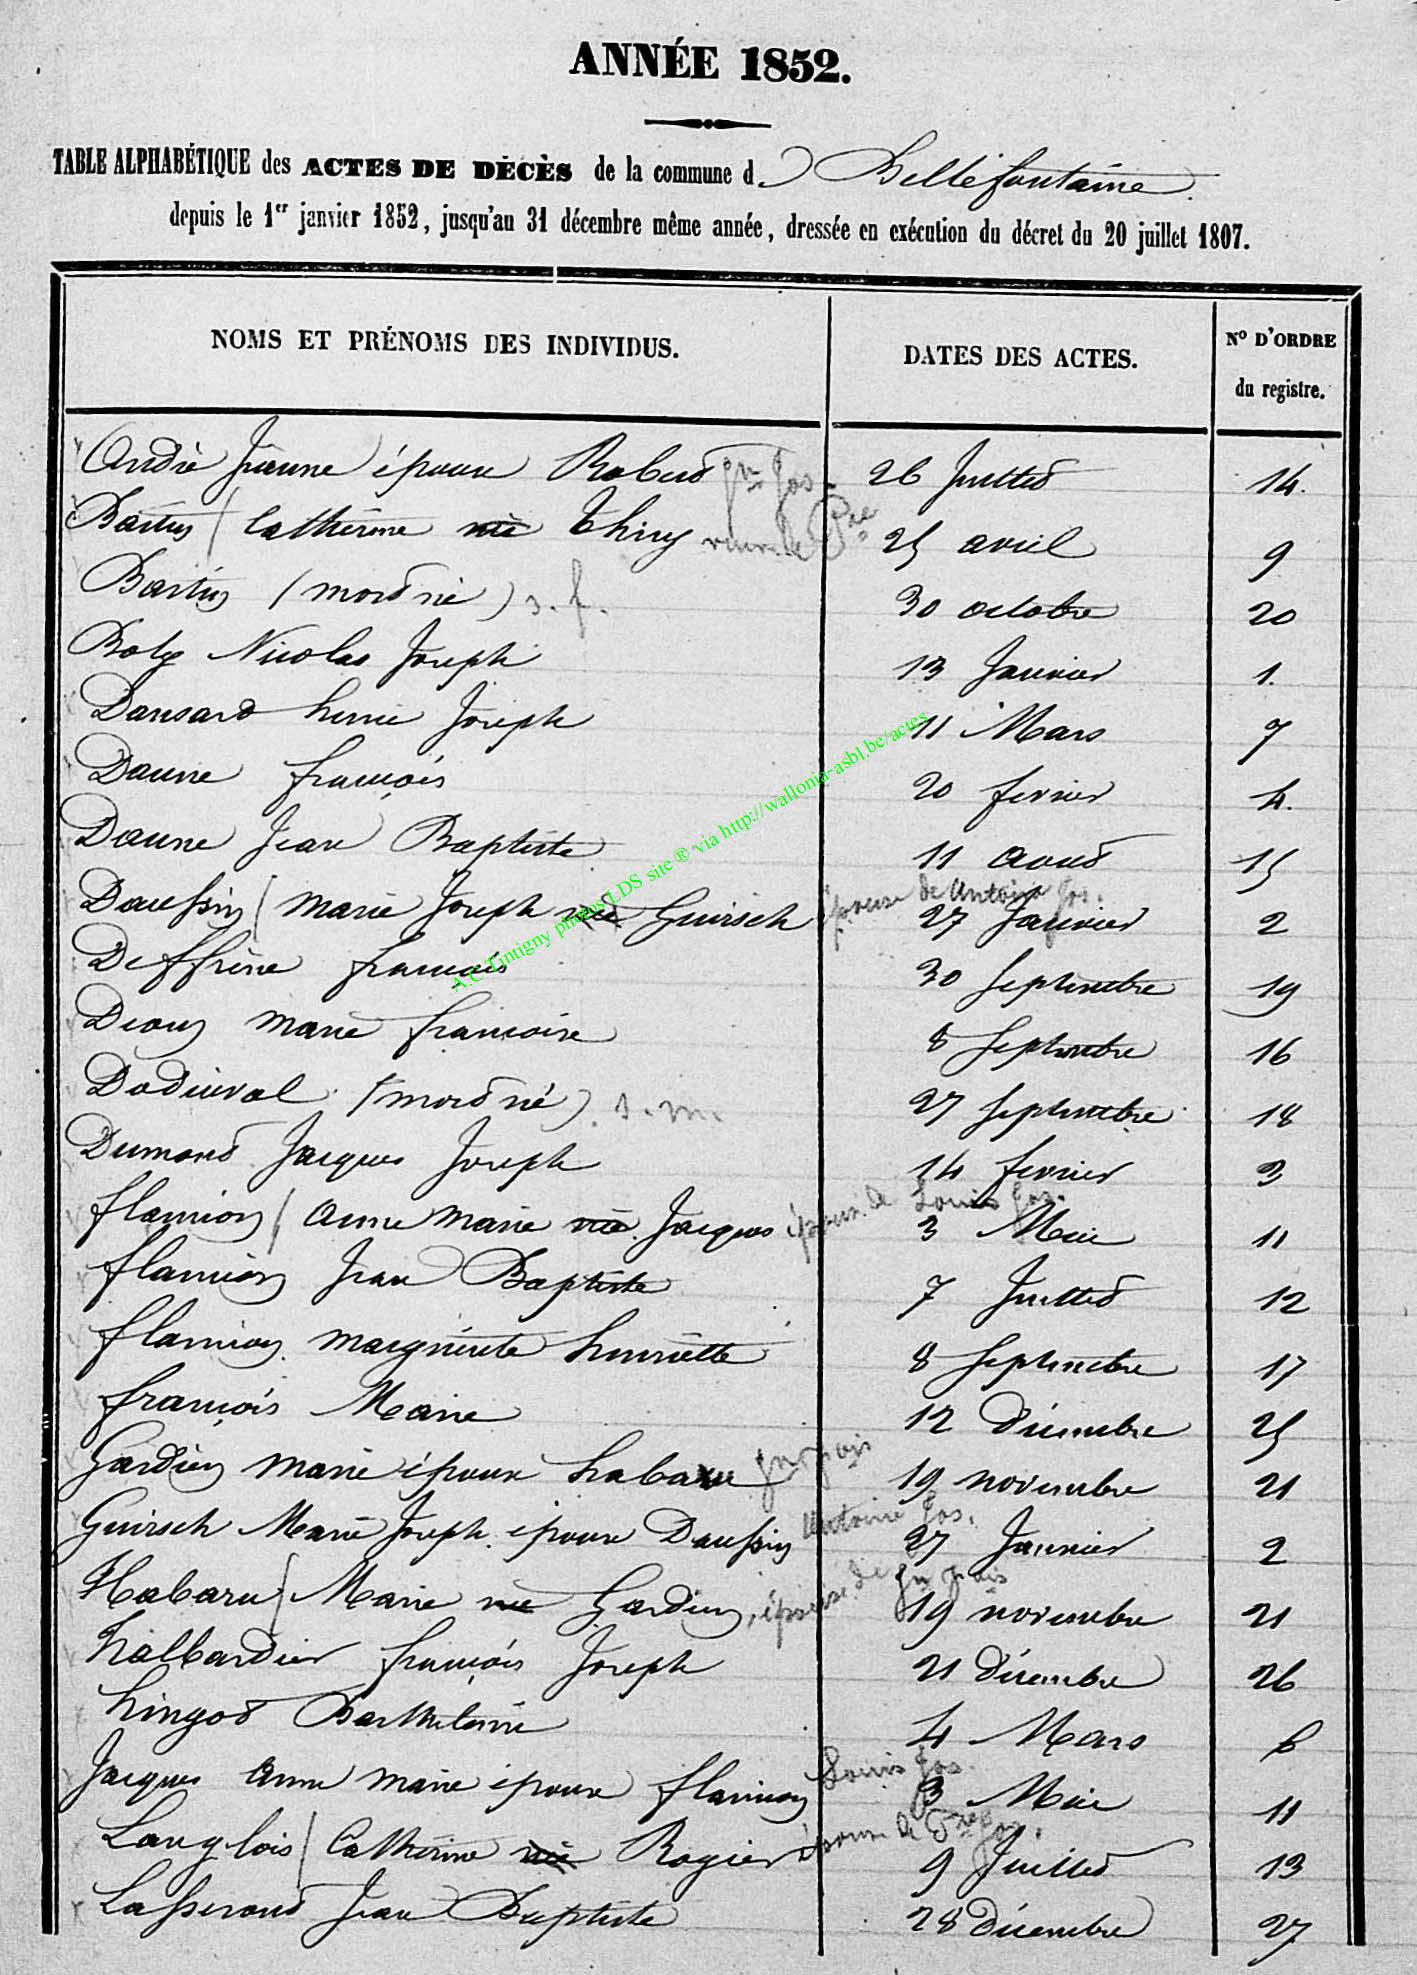 ANNÉE 1852.
TABLE ALPHABÉTIQUE des ACTES DE DÉCÈS de la commune d Bellefontaine.
depuis le 1er janvier 1852, jusqu'au 31 décembre même année, dressée en exécution du décret du 20 juillet 1807.
NOMS ET PRÉNOMS DES INDIVIDUS. DATES DES ACTES. N° D'ORDRE du registre.
André Jeanne épouse Robert Jn Jos. 26 Juillet 14.
Bastin / Catherine née Thiry veuve de Pre 25 avril 9
Bastin (mort né) s. f. 30 octobre 20
Nicolas Joseph 13 Janvier 1.
Dansard henri Joseph 11 Mars 7
Daune françois 20 fevrier 4.
Daune Jean Baptiste 11 aout 15
Daussin / marie Joseph née Guirsch épouse de Antoine Jos. 27 Janvier 2
Deffrène francois 30 Septembre 19
marie francoise 8 Septembre 16
Dodinval (mort né) s. m. 27 Septembre 18
Dumont Jacques Joseph 14 fevrier 3
flamion / anne marie née Jacques épouse de Louis Jos. 3 Mai 11
flamion Jean Baptiste 7 Juillet 12
flamion marguerite henriette 8 Septembre 17
françois Marie 12 Décembre 25
Gardien marie épouse habaru Jn fois 19 novembre 21
Guirsch Marie Joseph épouse Daussin Antoine Jos. 27 Janvier 2
Habaru / Marie née Gardien, épouse de Jn fois 19 novembre 21
halbardier françois Joseph 21 décembre 26
hingot Barthelemi 4 Mars 6
Jacques anne marie épouse flamion Louis Jos. 3 Mai 11
Langlois / Catherine née Rogier épouse de Jos. 9 Juillet 13
Lasserant Jean Baptiste 28 Décembre 27
A.C Tintigny photos LDS site ® via http://wallonia-asbl.be/actes